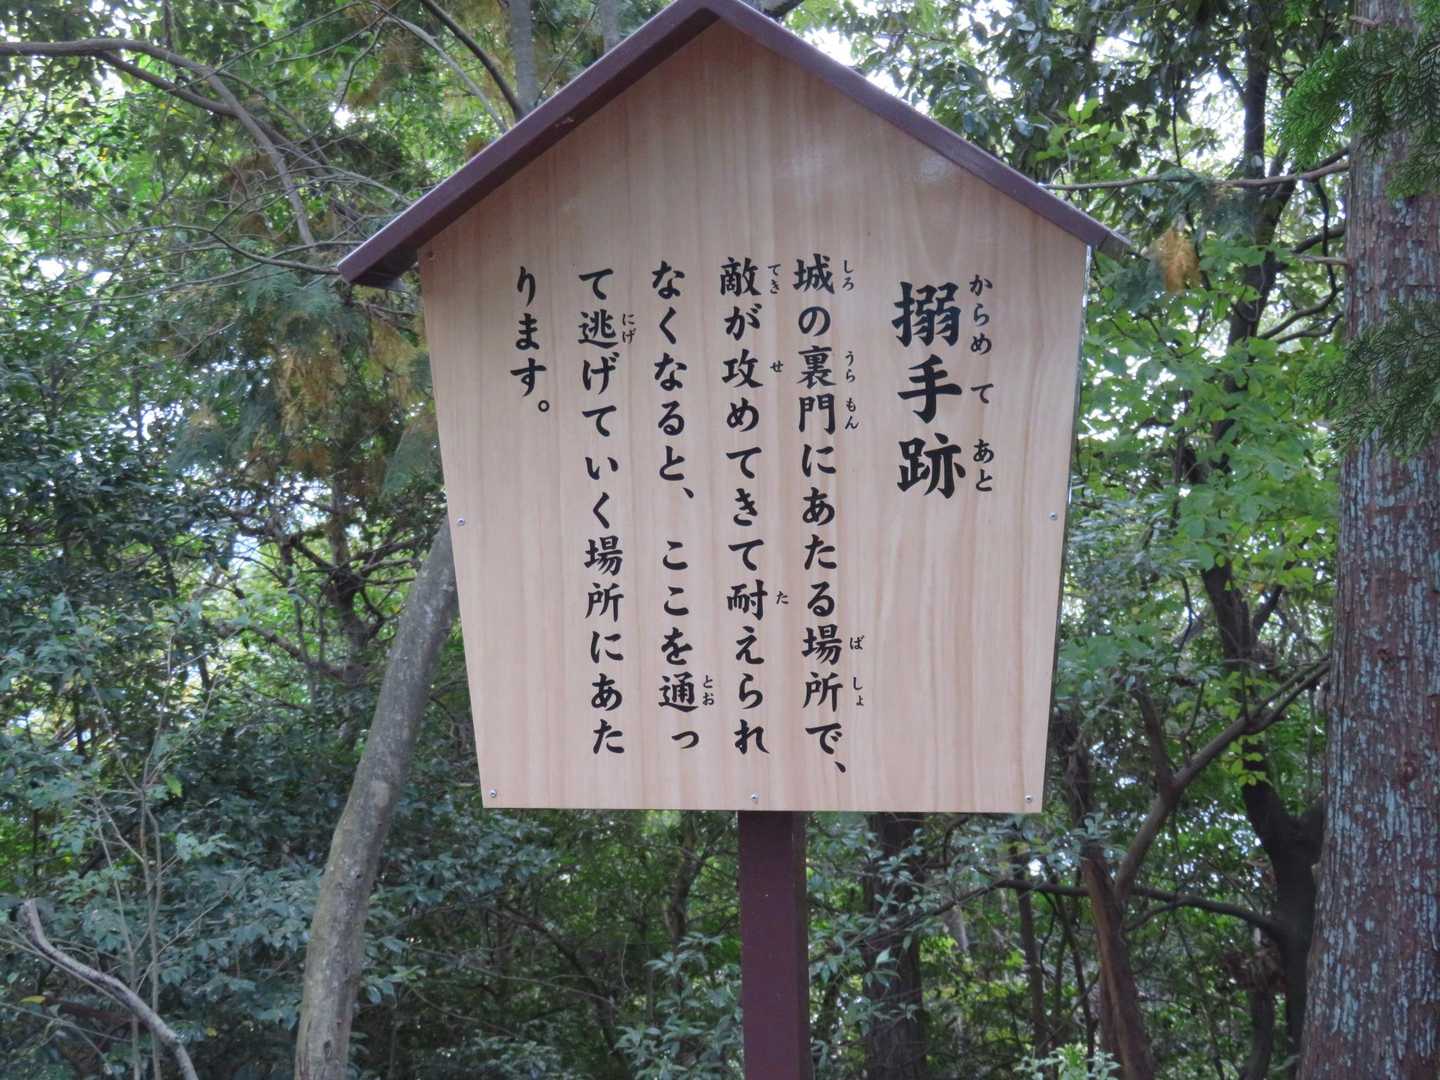 搦手跡
からめてあと
城の裏門にあたる場所で、
しろ うら もん ば しょ
敵が攻めてきて耐えられ
てき せ た
なくなると、ここを通っ
とお
て逃げていく場所にあた
にげ
ります。